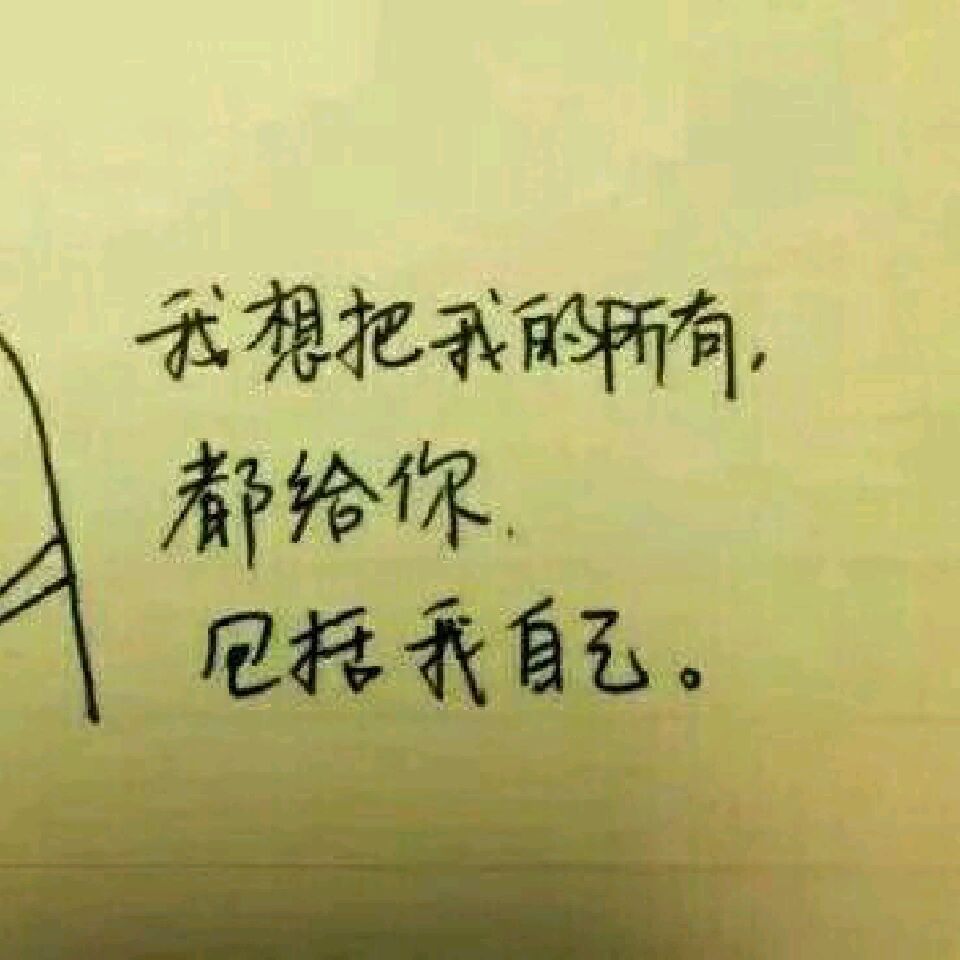 我想把我的所有,
都给你.
包括我自己。